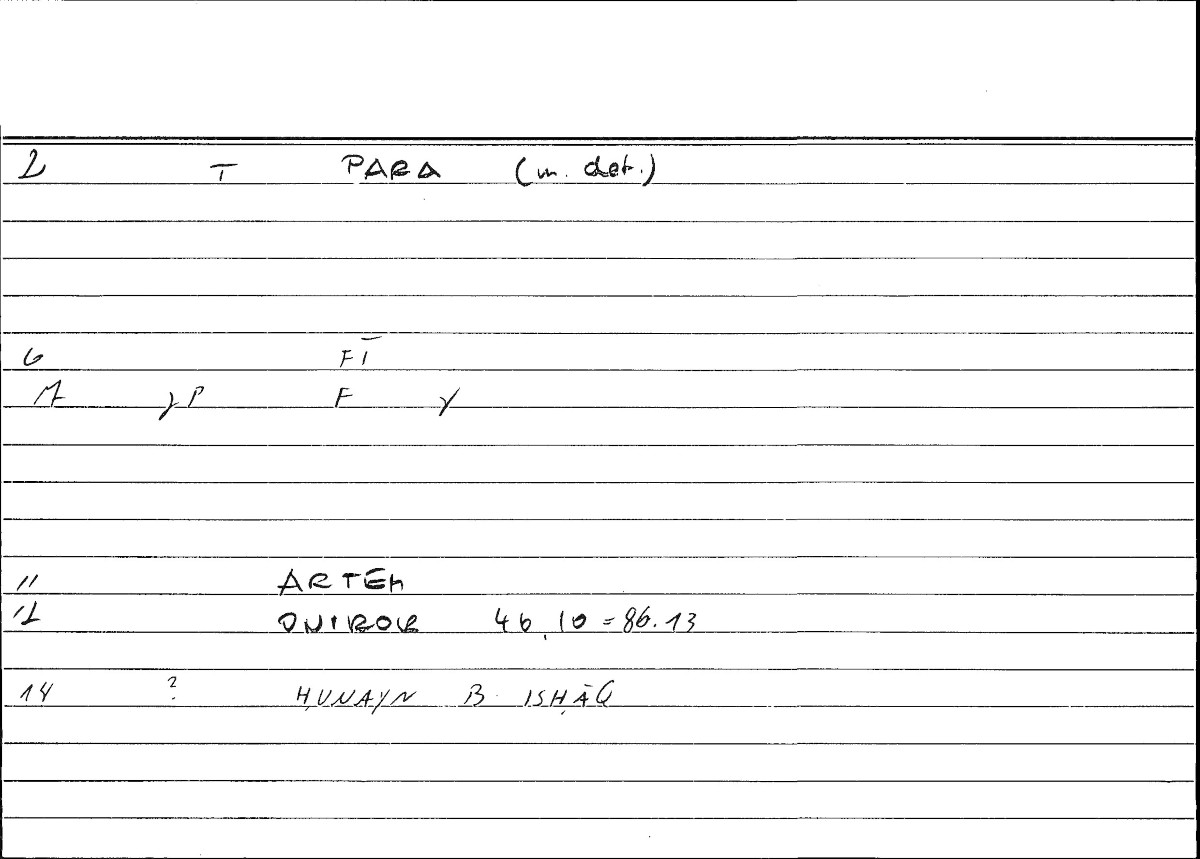 2 T PARA (m. det.)
6 FĪ
F γ
11 ARTEM
12 ONIROCR 46,10 = 86.13
14 ? ḤUNAYN B ISḤĀQ